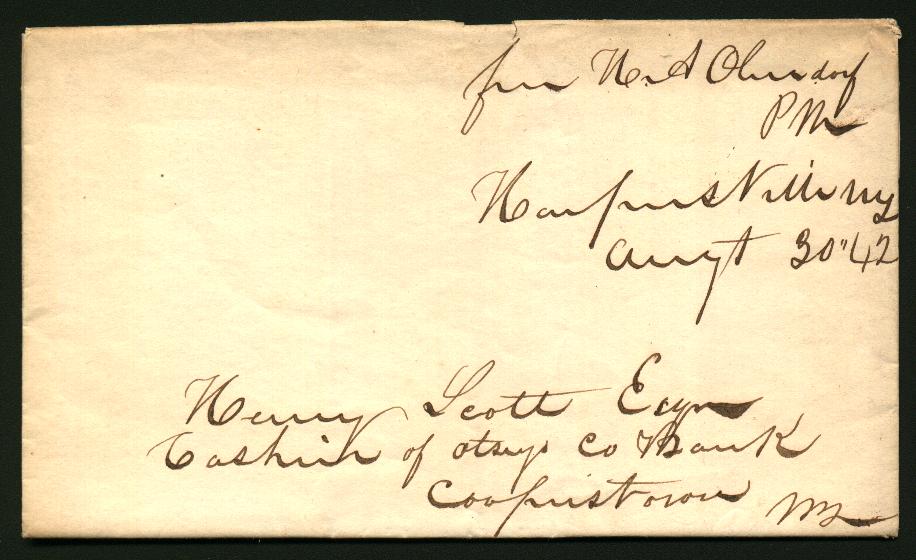 free H. A Olendorf
PM
Harpersville NY
Augt 30" 42
Henry Scott Esqr
Cashier of Otsego Co Bank
Cooperstown NY